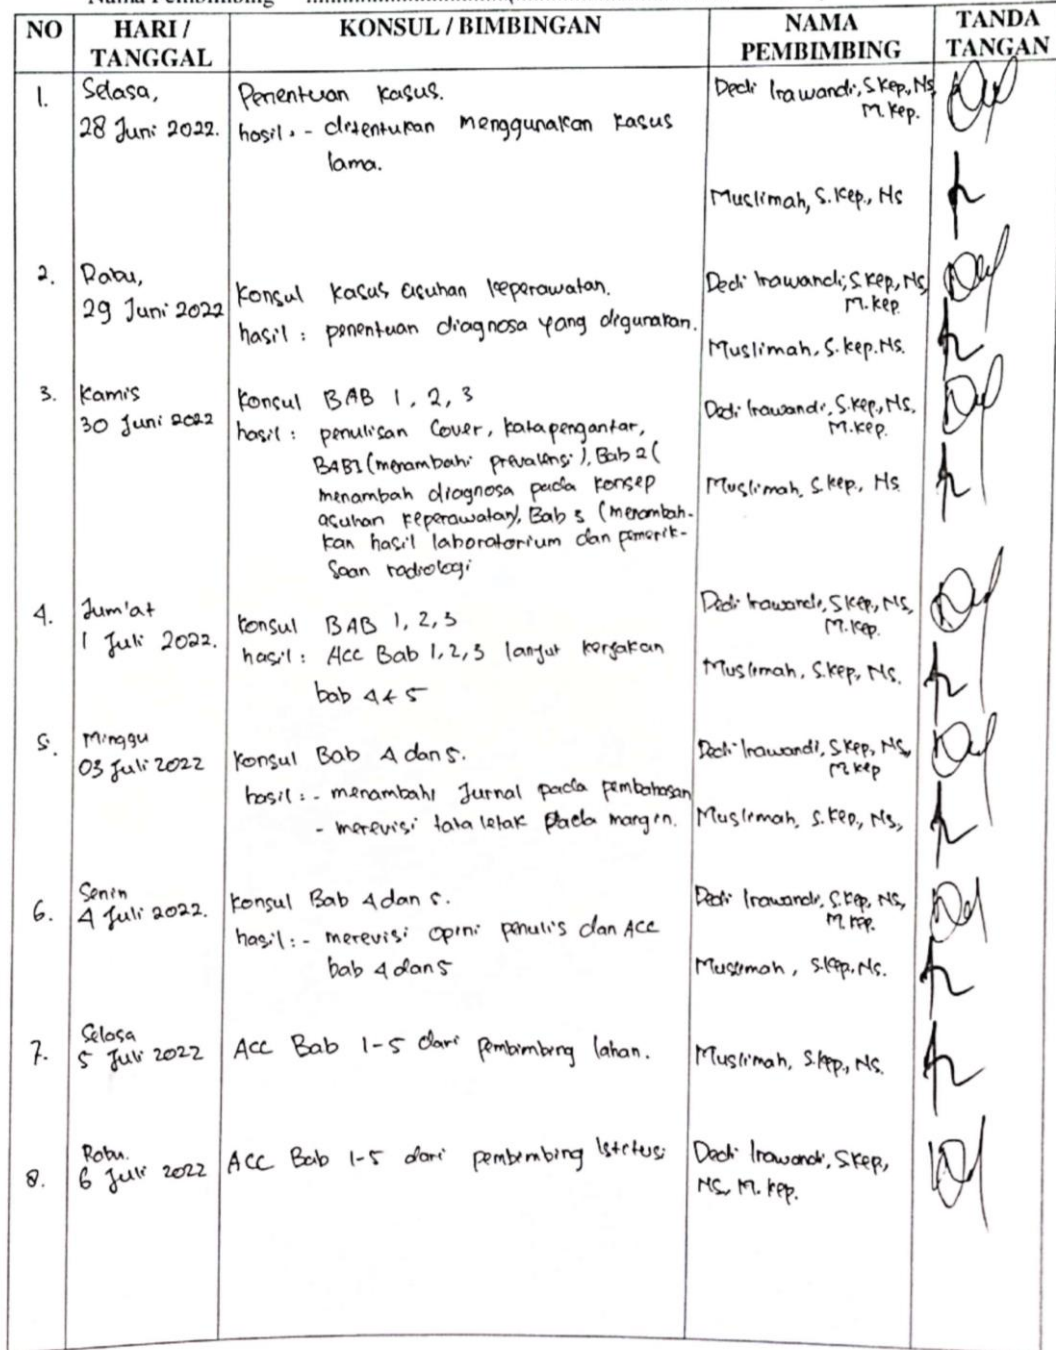 NO
HARI / TANGGAL
KONSUL / BIMBINGAN
NAMA PEMBIMBING
TANDA TANGAN
1.
Selasa,
28 Juni 2022.
Penentuan kasus.
hasil : - ditentukan menggunakan kasus
lama.
Dedi Irawandi, S.Kep., Ns,
M.Kep.
Muslimah, S.Kep., Ns
2.
Rabu,
29 Juni 2022
Konsul kasus asuhan keperawatan.
hasil : penentuan diagnosa yang digunakan.
Dedi Irawandi, S.Kep, Ns,
M.Kep.
Muslimah, S.Kep.Ns.
3.
Kamis
30 Juni 2022
Konsul BAB 1, 2, 3
hasil : penulisan Cover, kata pengantar,
BAB 1 (menambahi prevalensi), Bab 2 (
menambah diagnosa pada konsep
asuhan keperawatan), Bab 3 (menambah-
kan hasil laboratorium dan pemerik-
saan radiologi
Dedi Irawandi, S.Kep., Ns,
M.Kep.
Muslimah, S.Kep., Ns
4.
Jum'at
1 Juli 2022.
Konsul BAB 1, 2, 3
hasil : Acc Bab 1, 2, 3 lanjut kerjakan
bab 4 & 5
Dedi Irawandi, S.Kep., Ns,
M.Kep.
Muslimah, S.Kep, Ns.
5.
Minggu
03 Juli 2022
Konsul Bab 4 dan 5.
hasil : - menambahi Jurnal pada pembahasan
- merevisi tata letak pada margin.
Dedi Irawandi, S.Kep, Ns,
M.Kep
Muslimah, S.Kep., Ns,
6.
Senin
4 Juli 2022.
Konsul Bab 4 dan 5.
hasil : - merevisi opini penulis dan Acc
bab 4 dan 5
Dedi Irawandi, S.Kep, Ns,
M.Kep.
Muslimah, S.Kep, Ns.
7.
Selasa
5 Juli 2022
Acc Bab 1-5 dari pembimbing lahan.
Muslimah, S.Kep., Ns.
8.
Rabu.
6 Juli 2022
Acc Bab 1-5 dari pembimbing Istitusi
Dedi Irawandi, S.Kep,
Ns, M.Kep.